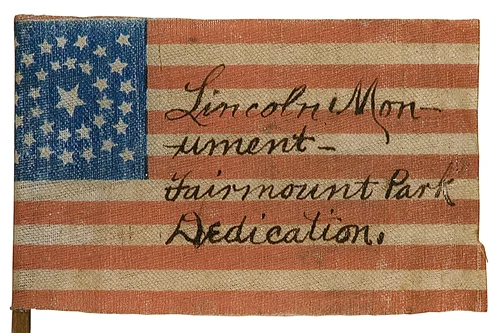 Lincoln Mon-
ument-
Fairmount Park
Dedication.